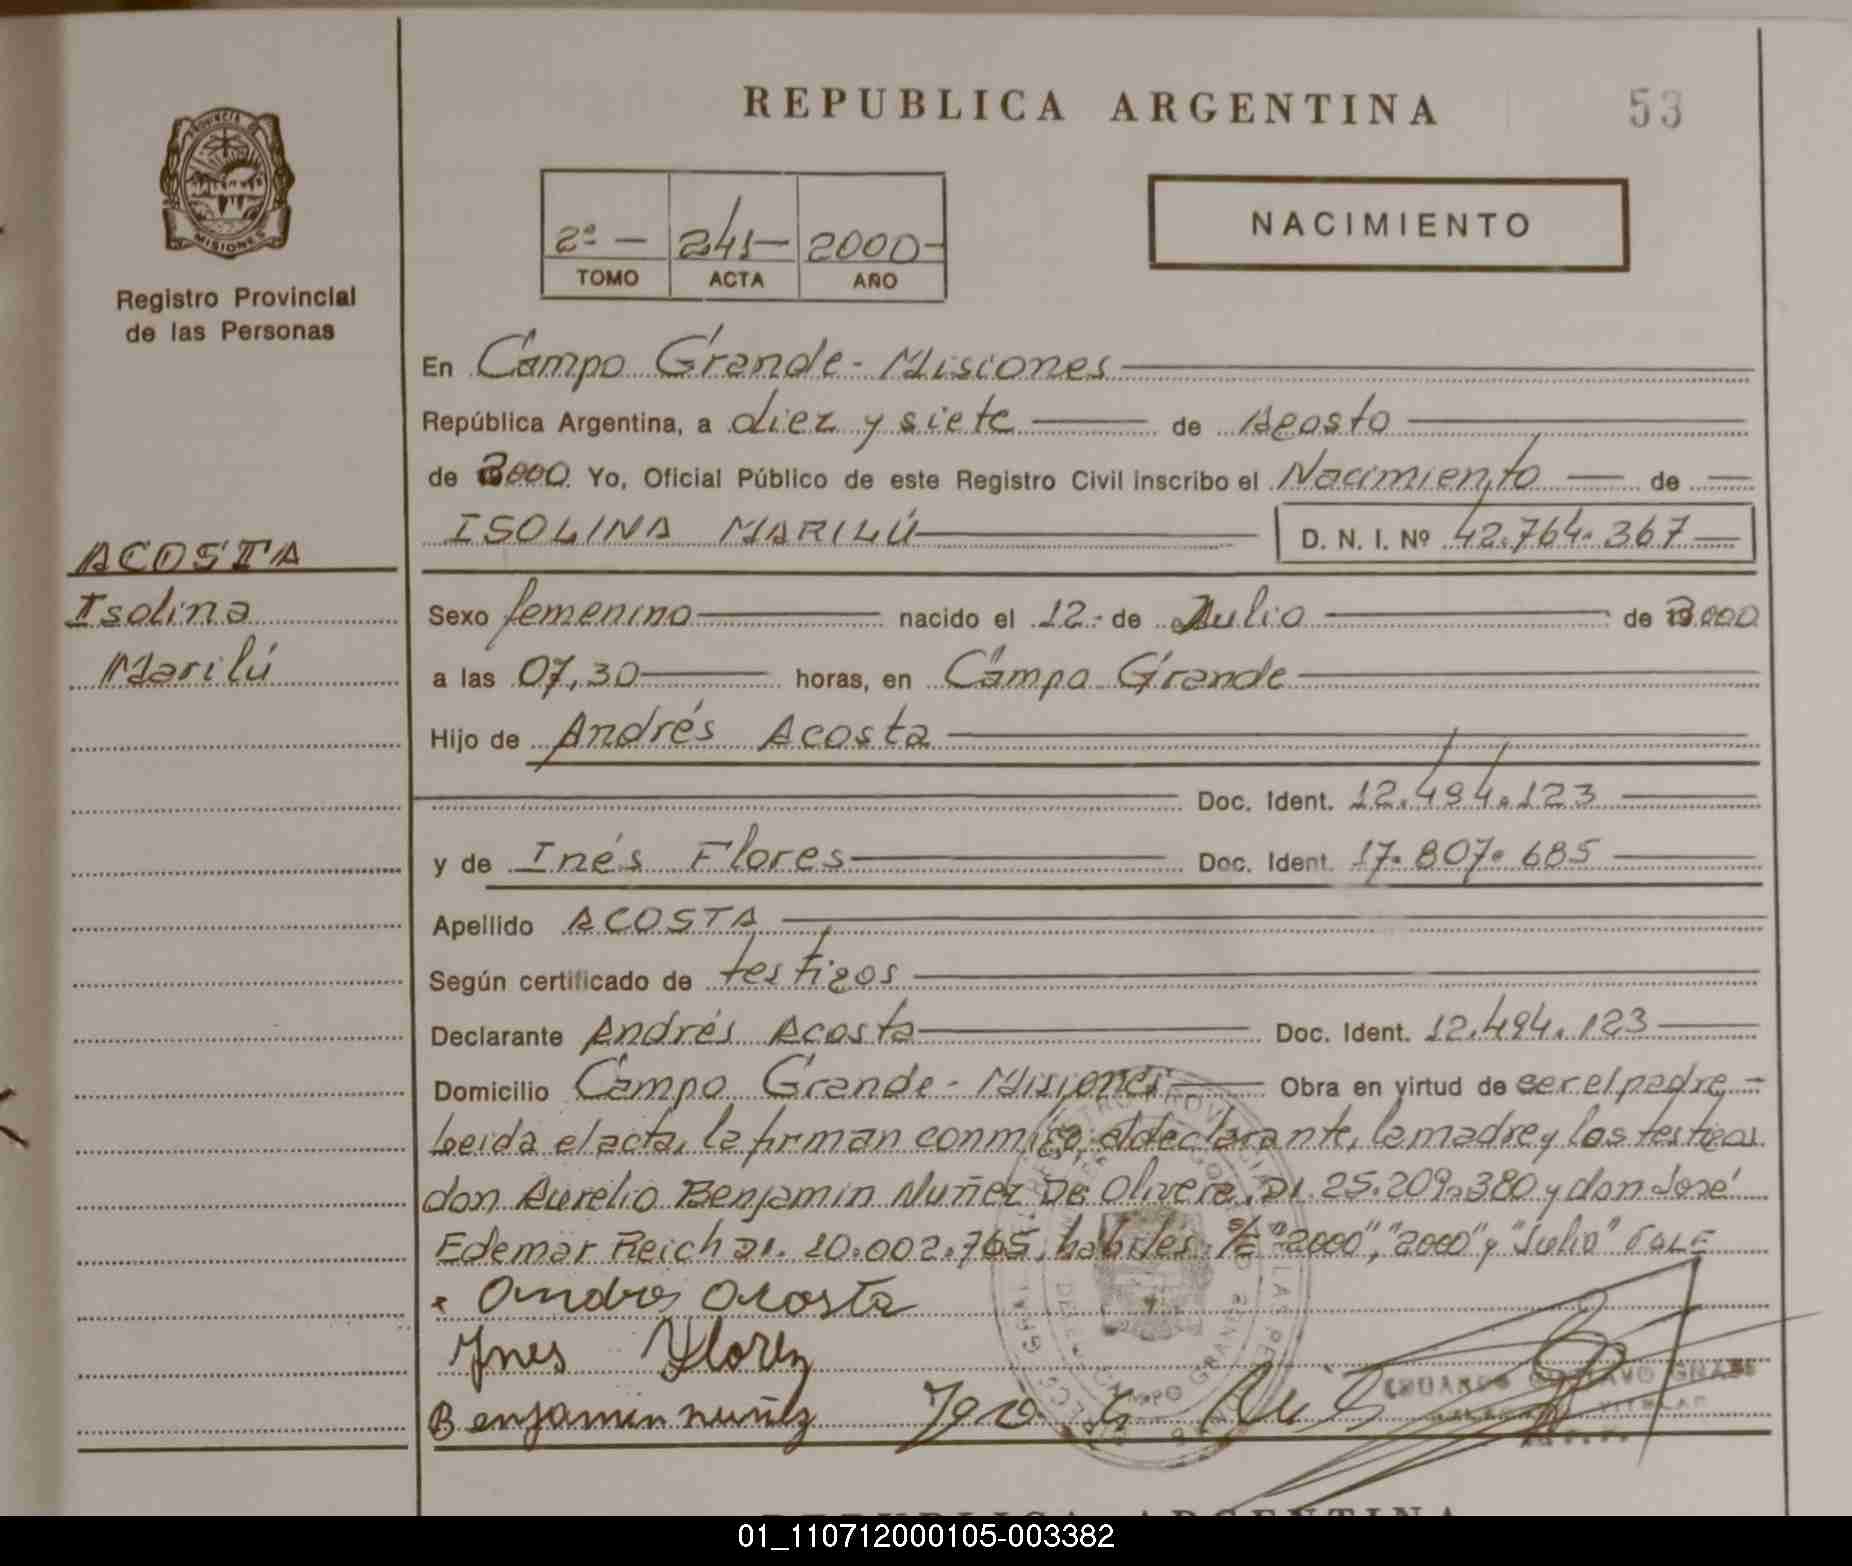 REPUBLICA ARGENTINA
53
PROVINCIA DE
MISIONES
Registro Provincial
de las Personas
2º - 241- 2000-
TOMO ACTA AÑO
NACIMIENTO
En Campo Grande - Misiones
República Argentina, a diez y siete de Agosto
de 2000 Yo, Oficial Público de este Registro Civil inscribo el Nacimiento de
ISOLINA MARILÚ D. N. I. Nº 42.764.367
ACOSTA
Isolina
Marilú
Sexo femenino nacido el 12 - de Julio de 2000
a las 07,30 horas, en Campo Grande
Hijo de Andrés Acosta
Doc. Ident. 12.494.123
y de Inés Flores Doc. Ident. 17.807.685
Apellido ACOSTA
Según certificado de testigos
Declarante Andrés Acosta Doc. Ident. 12.494.123
Domicilio Campo Grande - Misiones Obra en virtud de ser el padre -
Leida el acta, la firman conmigo, el declarante, la madre y los testigos
don Aurelio Benjamin Nuñez De Olivera, DI. 25.209.380 y don José
Edemar Reich DI. 10.002.765, habiles. S/E "2000", "2000" y "Julio" VALE
Andres Acosta
Ynes Florez
Benjamin nuñez
EDUARDO GUSTAVO
TITULAR
REPUBLICA ARGENTINA
01_110712000105-003382